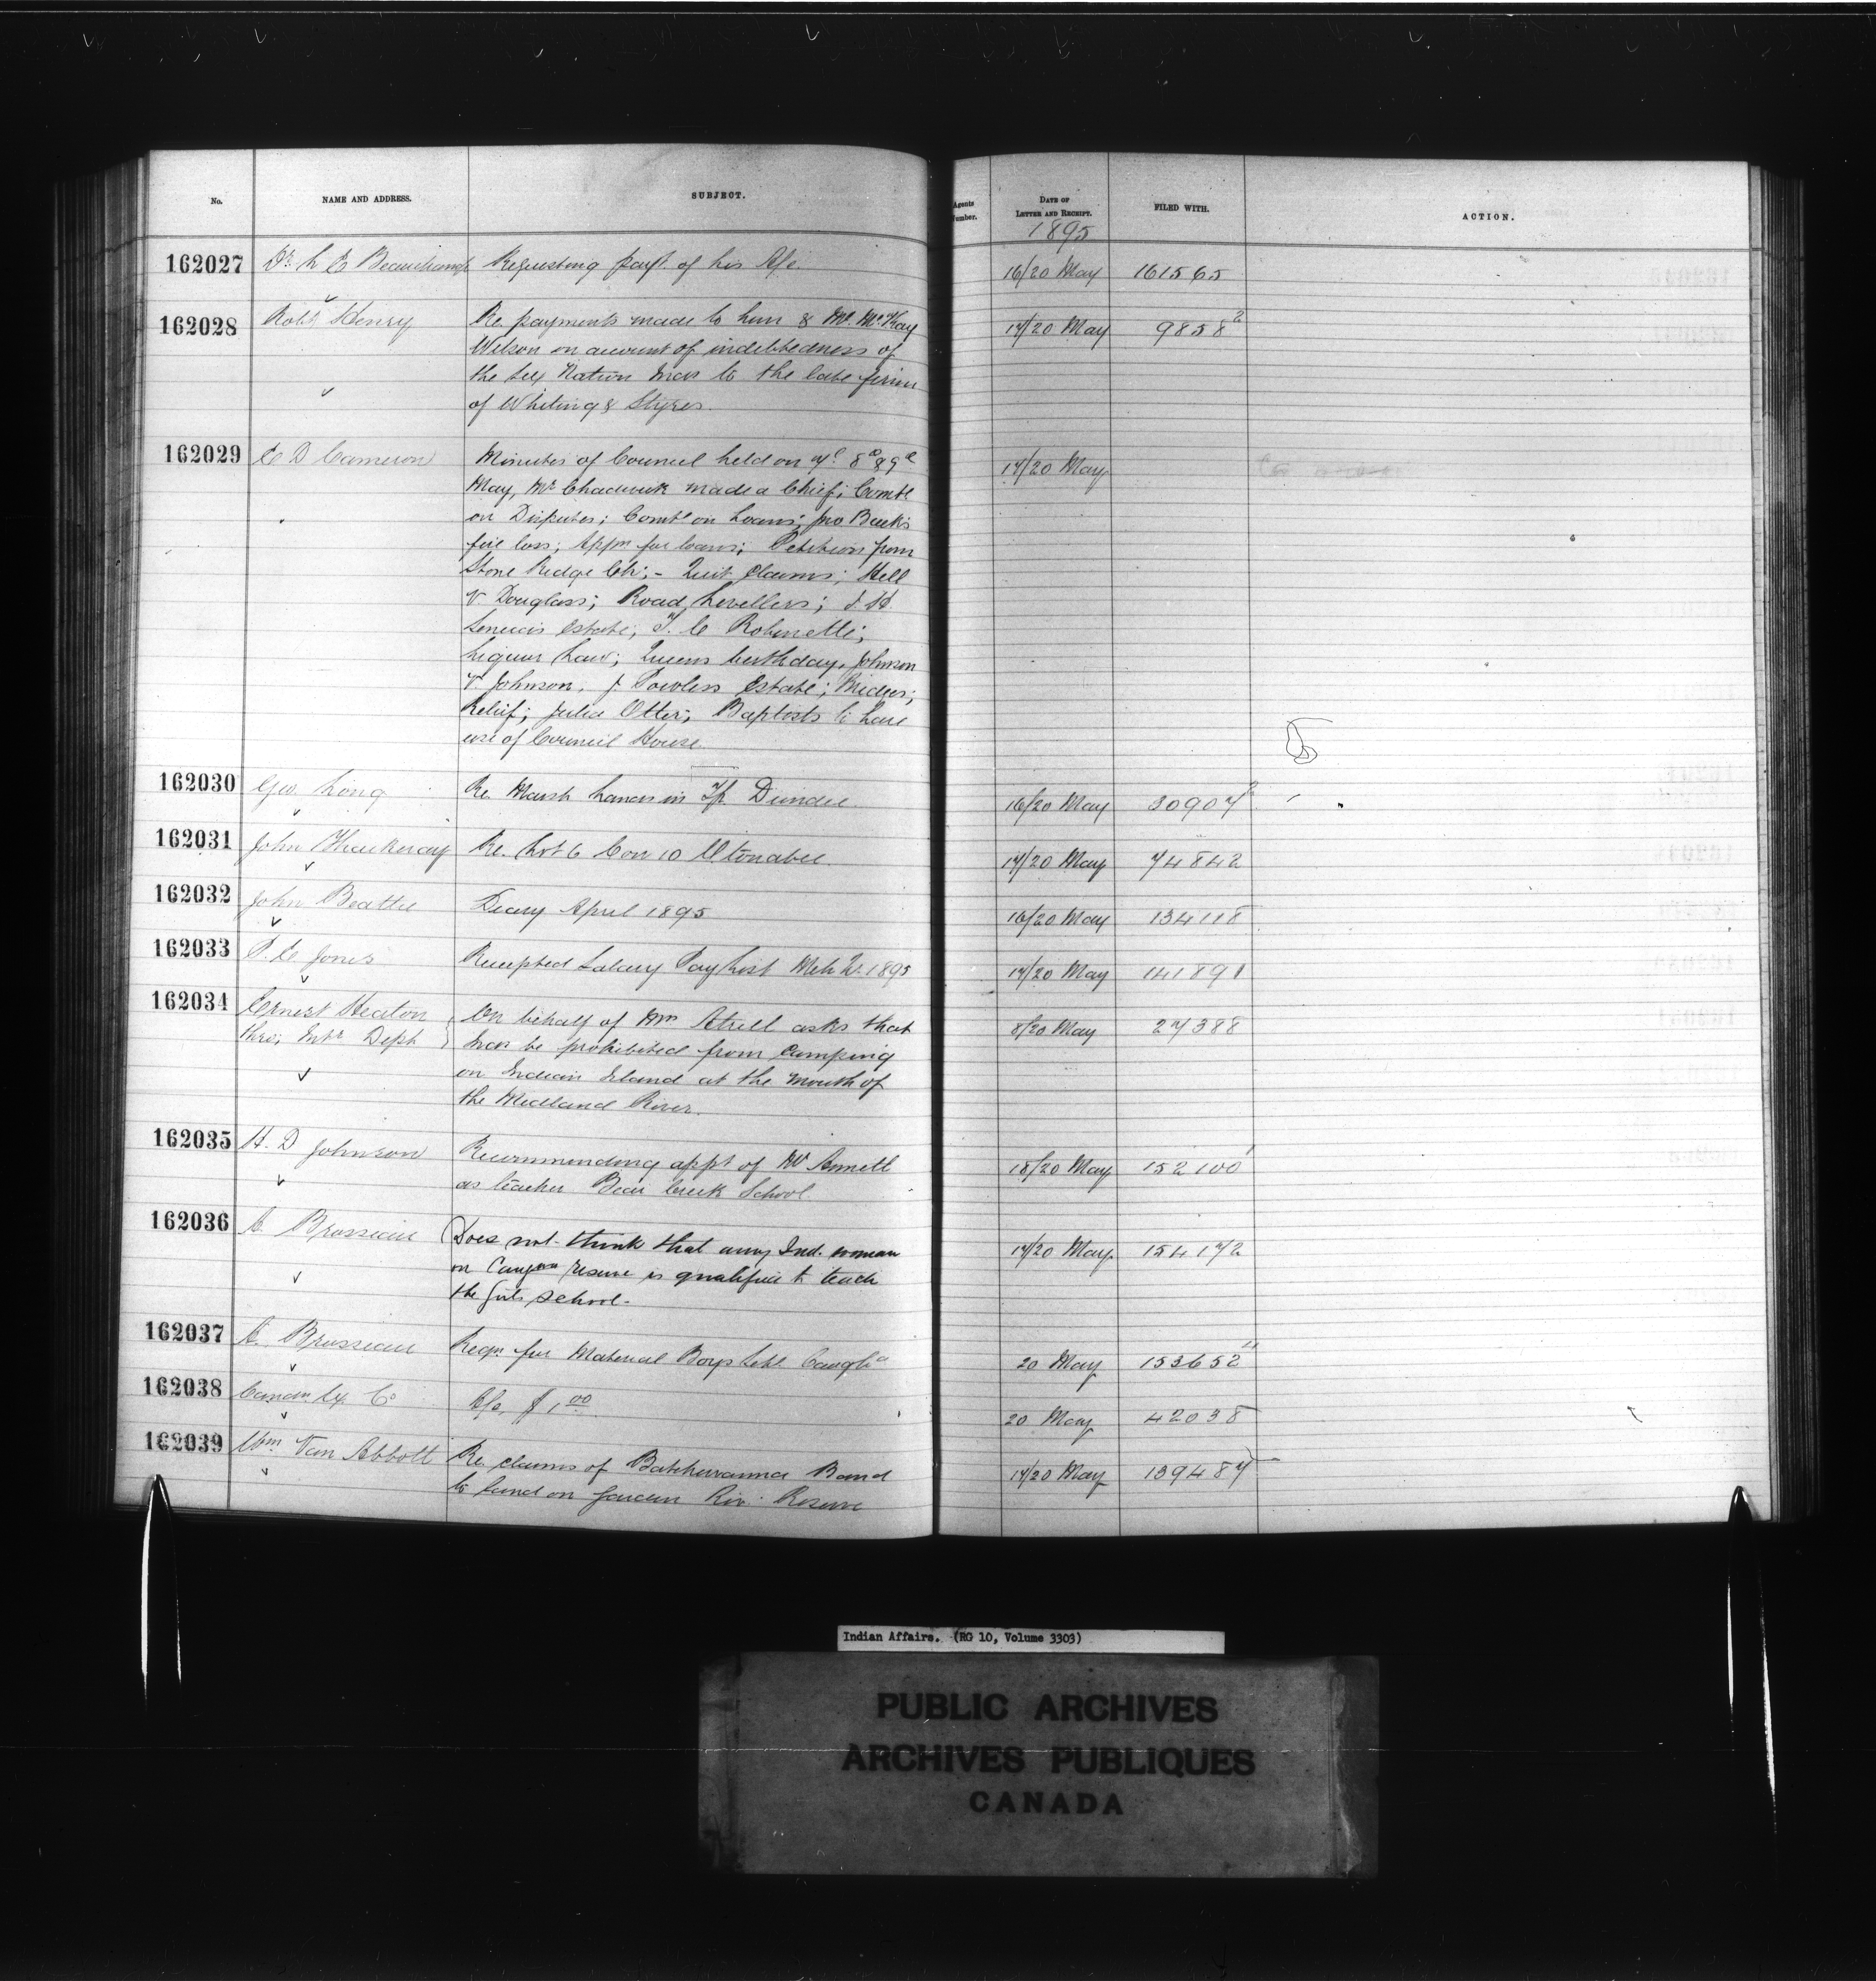 No. NAME AND ADDRESS. SUBJECT. Agents Number. DATE OF LETTER AND RECEIPT. FILED WITH. ACTION.
1895
162027 Dr. L E Beauchamp Requesting payt. of his A/c. 16/20 May 161565
162028 Robt Henry Re. payments made to him & Mr. McKay 17/20 May 9858²
Wilson on account of indebtedness of
the Six Nation Inds to the late firm
of Whiting & Styres.
162029 E D Cameron Minutes of Council held on 7th 8th & 9th 17/20 May
May, Mr Chadwick made a Chief; Comte
on Disputes; Comte on Loans; Jno Buck's
fire loss; Appn for loans; Petition from
Stone Ridge Ch; - Quit Claims; Hill
v. Douglass; Road Levellers; J. H.
Estate; T. C Robinette;
Liquor Law; Queens birthday, Johnson
v. Johnson, J. Powless Estate; Bridges;
Relief; Julia Otter; Baptists to have
use of Council House.
162030 Geo. Long Re. Marsh Lands in Tp Dundee. 16/20 May 30907²
162031 John Thackeray Re. Lot 6 Con 10 Otonabee. 17/20 May 74842
162032 John Beattie Diary April 1895 16/20 May 134118
162033 P. E Jones Receipted Salary Pay List Mch Qr. 1895 17/20 May 141891
162034 Ernest Heaton On behalf of Mrs Atrill asks that 8/20 May 27388
thro; Intr Dept Inds be prohibited from Camping
on Indian Island at the mouth of
the Midland River.
162035 H. D Johnson Recommending appt of W Annett 18/20 May 152100¹
as teacher Bear Creek School.
162036 A. Brosseau Does not think that any Ind. woman 17/20 May 154172
on Caugna reserve is qualified to teach
the girls school.
162037 A. Brosseau Reqn for Material Boys Schl Caugha 20 May 153652
162038 Canan. Ex. Co A/c, $1.00 20 May 42038
162039 Wm Van Abbott Re. claims of Batchewanna Band 17/20 May 139487
to land on Garden Riv. Reserve
Indian Affairs. (RG 10, Volume 3303)
PUBLIC ARCHIVES
ARCHIVES PUBLIQUES
CANADA